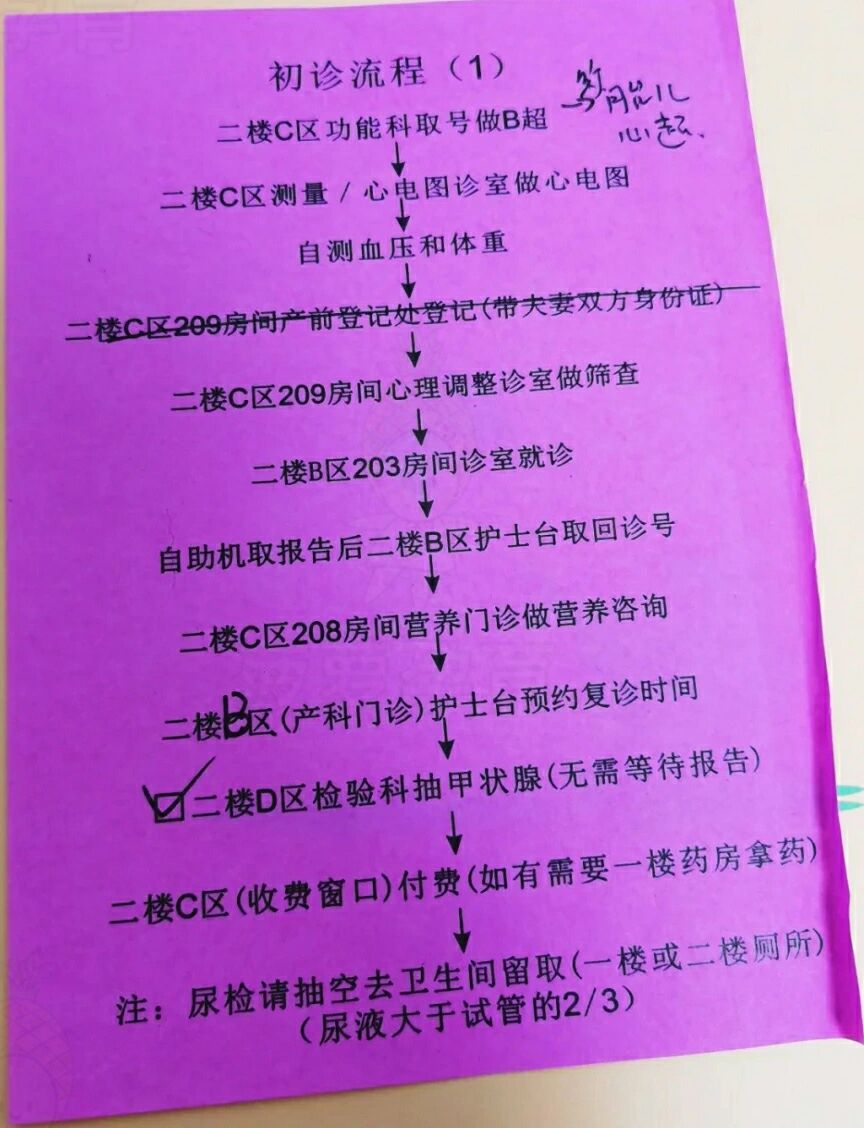 初诊流程（1）
二楼C区功能科取号做B超
二楼C区测量 / 心电图诊室做心电图
自测血压和体重
二楼C区209房间产前登记处登记(带夫妻双方身份证)
二楼C区209房间心理调整诊室做筛查
二楼B区203房间诊室就诊
自助机取报告后二楼B区护士台取回诊号
二楼C区208房间营养门诊做营养咨询
二楼B区(产科门诊)护士台预约复诊时间
二楼D区检验科抽甲状腺(无需等待报告)
二楼C区(收费窗口)付费(如有需要一楼药房拿药)
注：尿检请抽空去卫生间留取(一楼或二楼厕所)
（尿液大于试管的2/3）